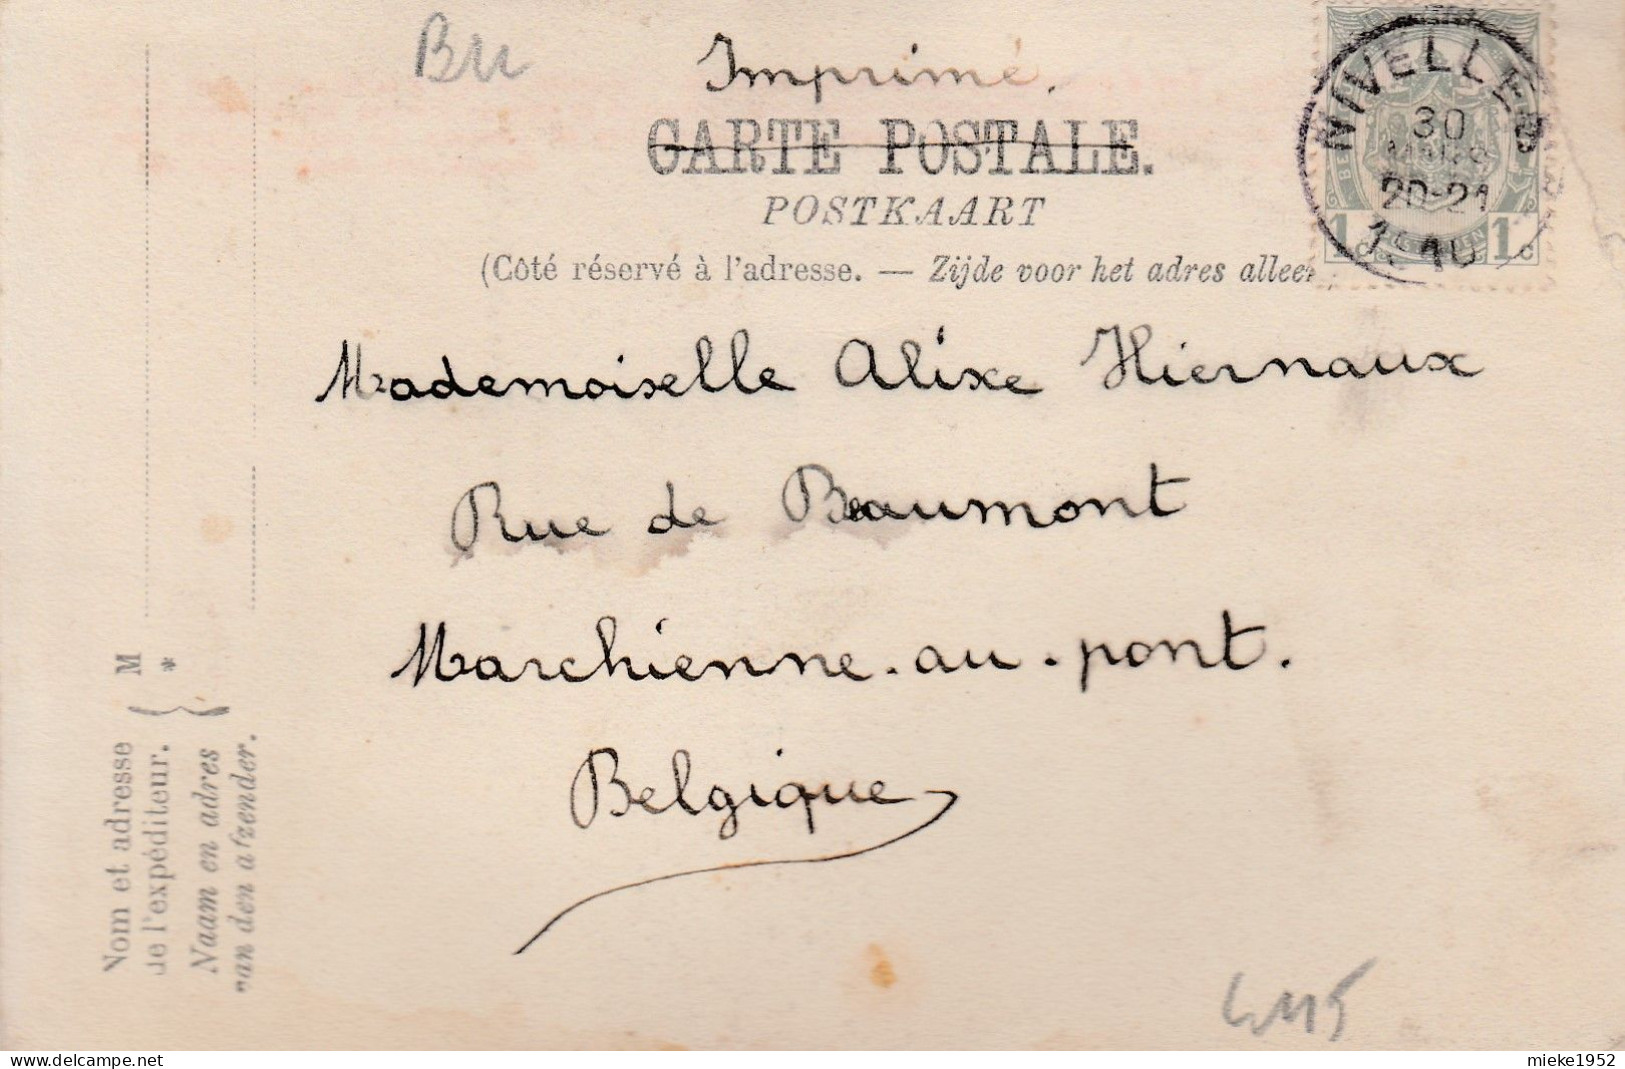 BU
Imprimé.
CARTE POSTALE.
POSTKAART
(Côté réservé à l'adresse. — Zijde voor het adres alleen
NIVELLES
30
20-21
1 c 1 c
Mademoiselle Alixe Hiernaux
Rue de Beaumont
Marchienne-au-pont.
Belgique
Nom et adresse
de l'expéditeur.
Naam en adres
van den afzender.
M
*
mieke1952